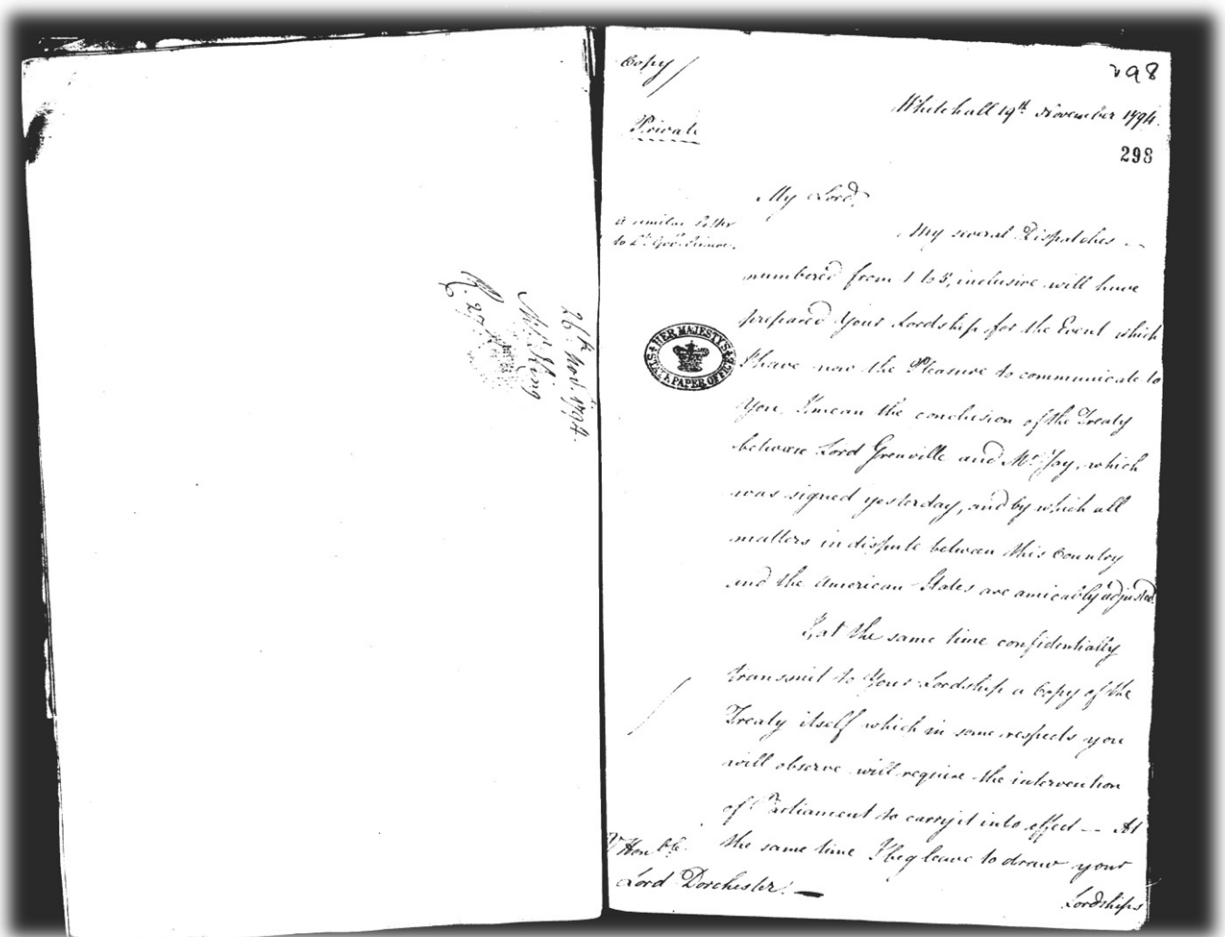 26th Novr. 1794.
Mr. King
R. 27
Copy
298
Whitehall 19th November 1794.
Private
298
My Lord,
a similar Letter
to Lt. Govr. Simcoe.
My several Dispatches
numbered from 1 to 3, inclusive will have
prepared Your Lordship for the Event which
I have now the Pleasure to communicate to
You, I mean the conclusion of the Treaty
between Lord Grenville and Mr. Jay, which
was signed yesterday, and by which all
matters in dispute between this Country
and the American States are amicably adjusted.
HER MAJESTY'S
STATE PAPER OFFICE
I, at the same time confidentially
transmit to Your Lordship a Copy of the
Treaty itself which in some respects you
will observe will require the intervention
of Parliament to carry it into effect -- At
the same time I beg leave to draw your
Lordships
Honble.
Lord Dorchester.